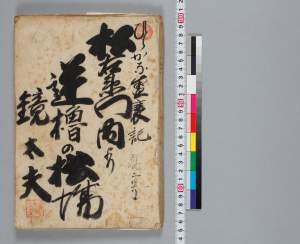 ひらかな盛衰記
松右衛門内より
逆櫓の松場
鏡太夫